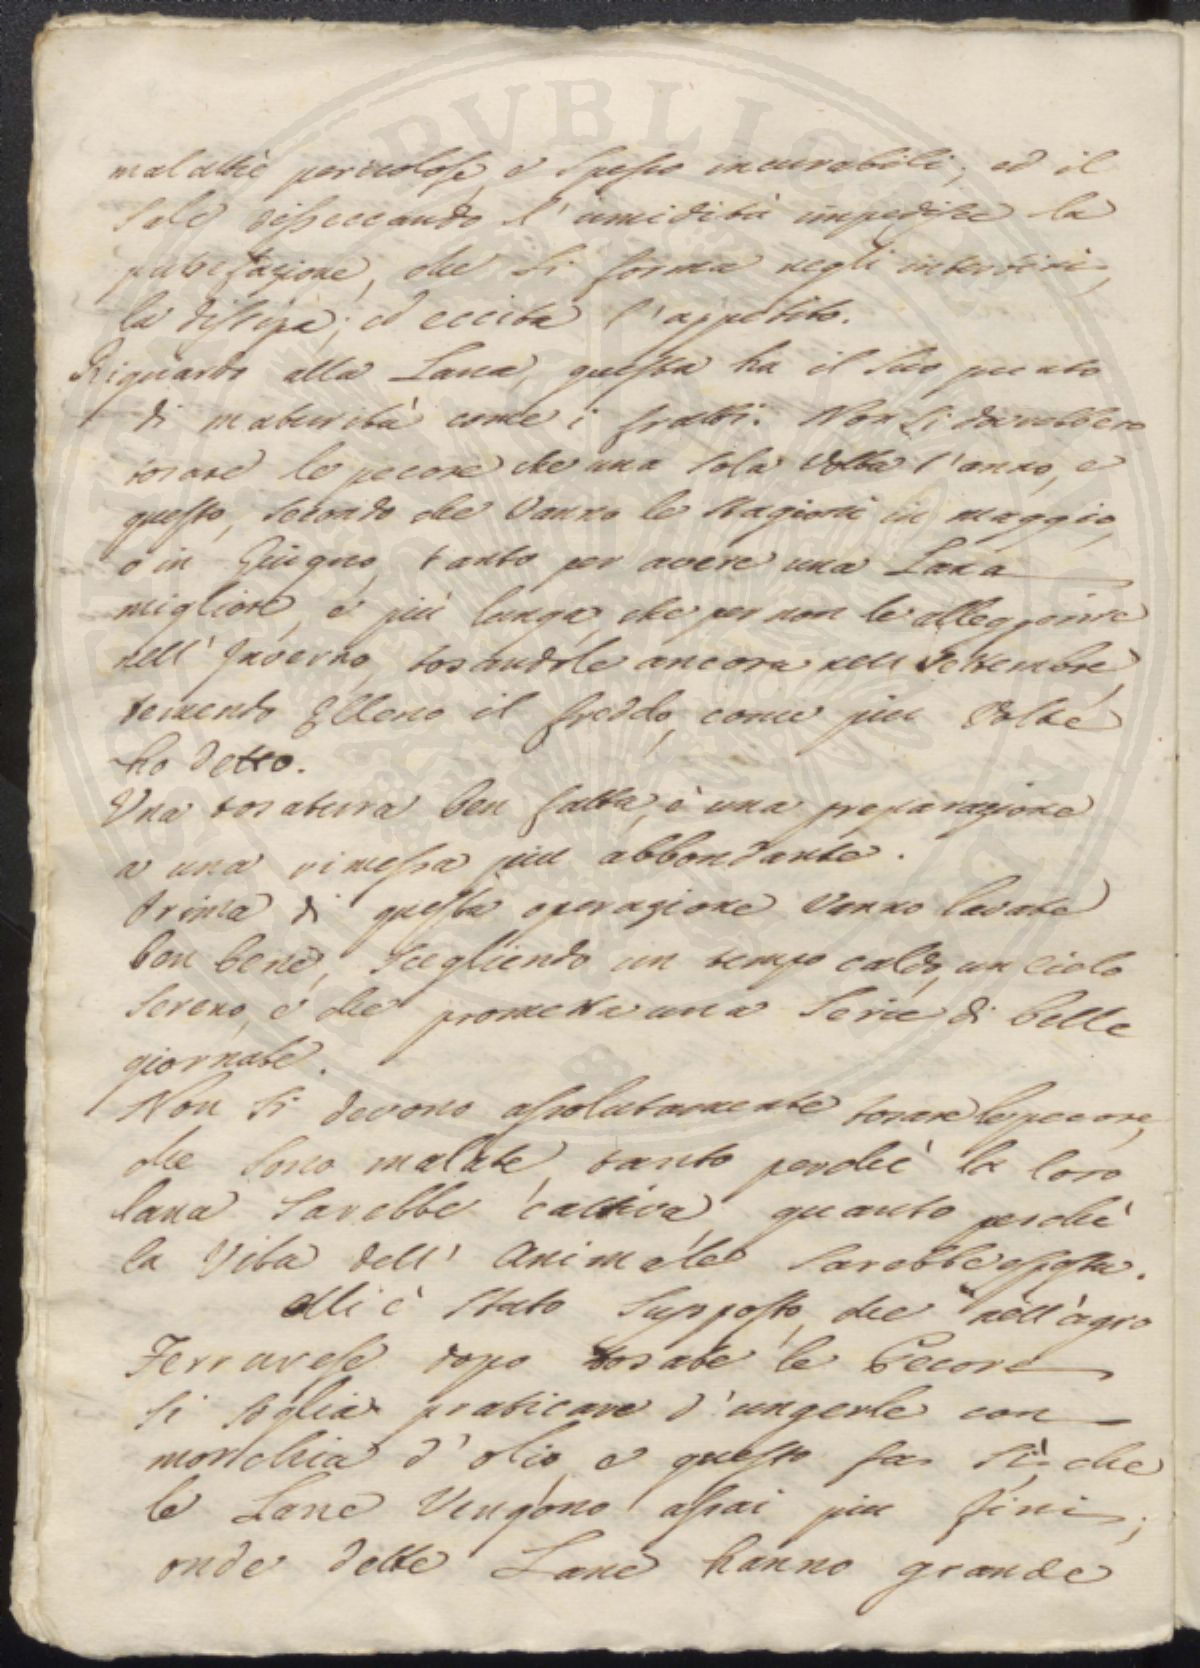 malattie pericolose, e spesso incurabili; ed il
Sale disseccando l'umidità impedisce la
putrefazione, che si forma negli intestini,
la dissipa; ed eccita l'appetito.
Riguardo alla Lana, questa ha il suo punto
di maturità come i frutti. Non si dovrebbero
tosare le pecore che una sola volta l'anno, e
questo, secondo che vanno le stagioni in maggio,
o in Giugno, tanto per avere una Lana
migliore, e più lunga, che per non le alleggerire
nell'Inverno, tosandole ancora nell Settembre,
temendo Elleno il freddo, come piu volte
ho detto.
Una tosatura ben fatta, è una preparazione
a una rimessa piu abbondante.
Prima di questa operazione vanno lavate
ben bene, scegliendo un tempo caldo, un cielo
sereno, e che prometta una serie di belle
giornate.
Non si devono assolutamente tosare le pecore,
che sono malate, tanto perchè la loro
lana sarebbe cattiva, quanto perchè
la vita dell'Animale sarebbe esposta.
Mi è stato supposto, che nell'agro
Ferrarese dopo tosate le Pecore
si soglia praticare d'ungerle con
morchia d'olio, e questo fa sì che
le Lane vengono assai piu fini;
onde dette Lane hanno grande